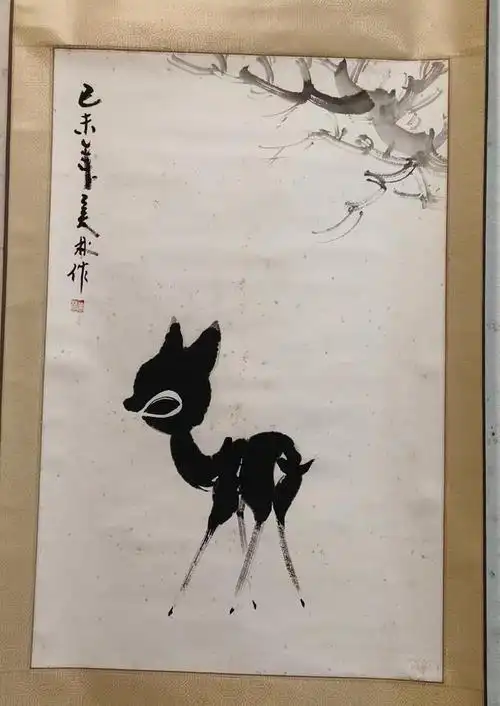 己未年美林作